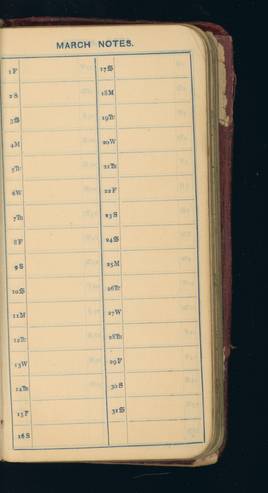 MARCH NOTES.
1 F
2 S
3 S
4 M
5 Tu
6 W
7 Th
8 F
9 S
10 S
11 M
12 Tu
13 W
14 Th
15 F
16 S
17 S
18 M
19 Tu
20 W
21 Th
22 F
23 S
24 S
25 M
26 Tu
27 W
28 Th
29 F
30 S
31 S